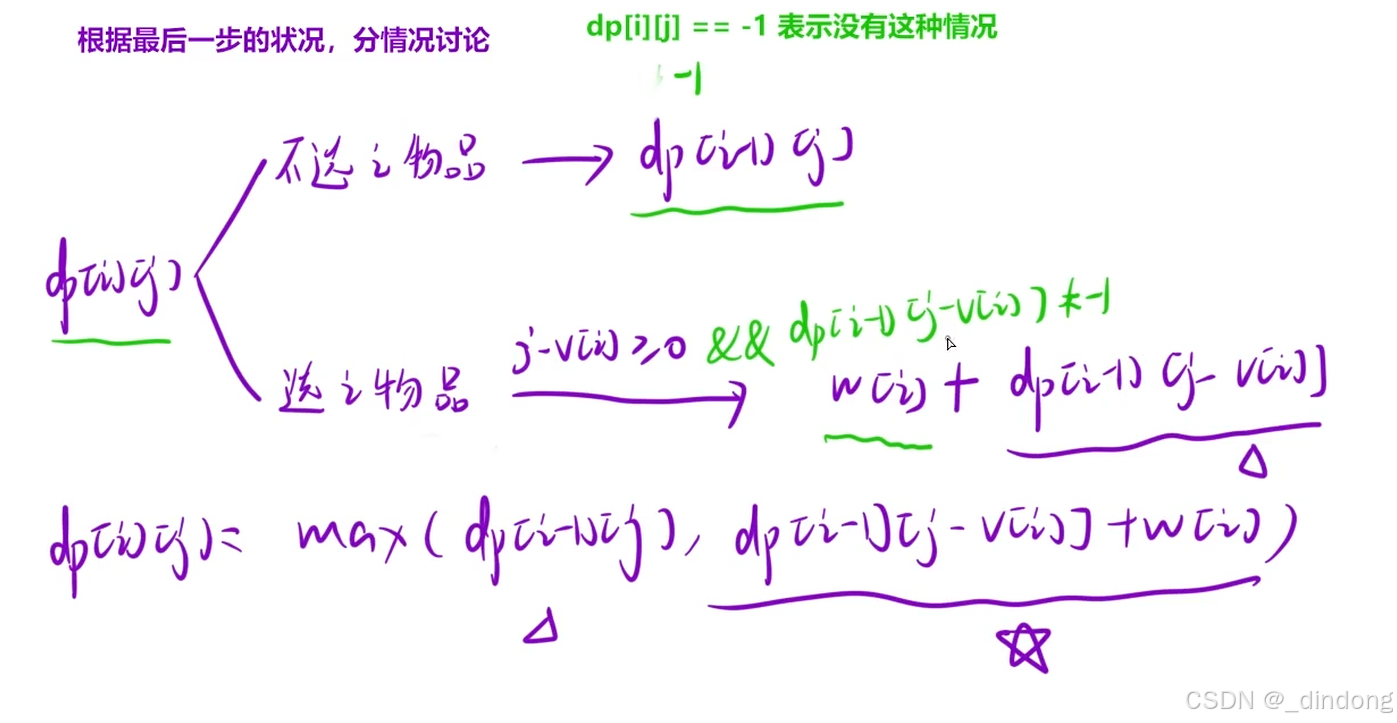 根据最后一步的状况，分情况讨论
dp[i][j] == -1 表示没有这种情况
-1
不选 i 物品 → dp[i-1][j]
dp[i][j]
j-v[i] ≥ 0 && dp[i-1][j-v[i]] ≠ -1
选 i 物品 → w[i] + dp[i-1][j-v[i]]
dp[i][j] = max(dp[i-1][j], dp[i-1][j-v[i]]+w[i])
CSDN @_dindong